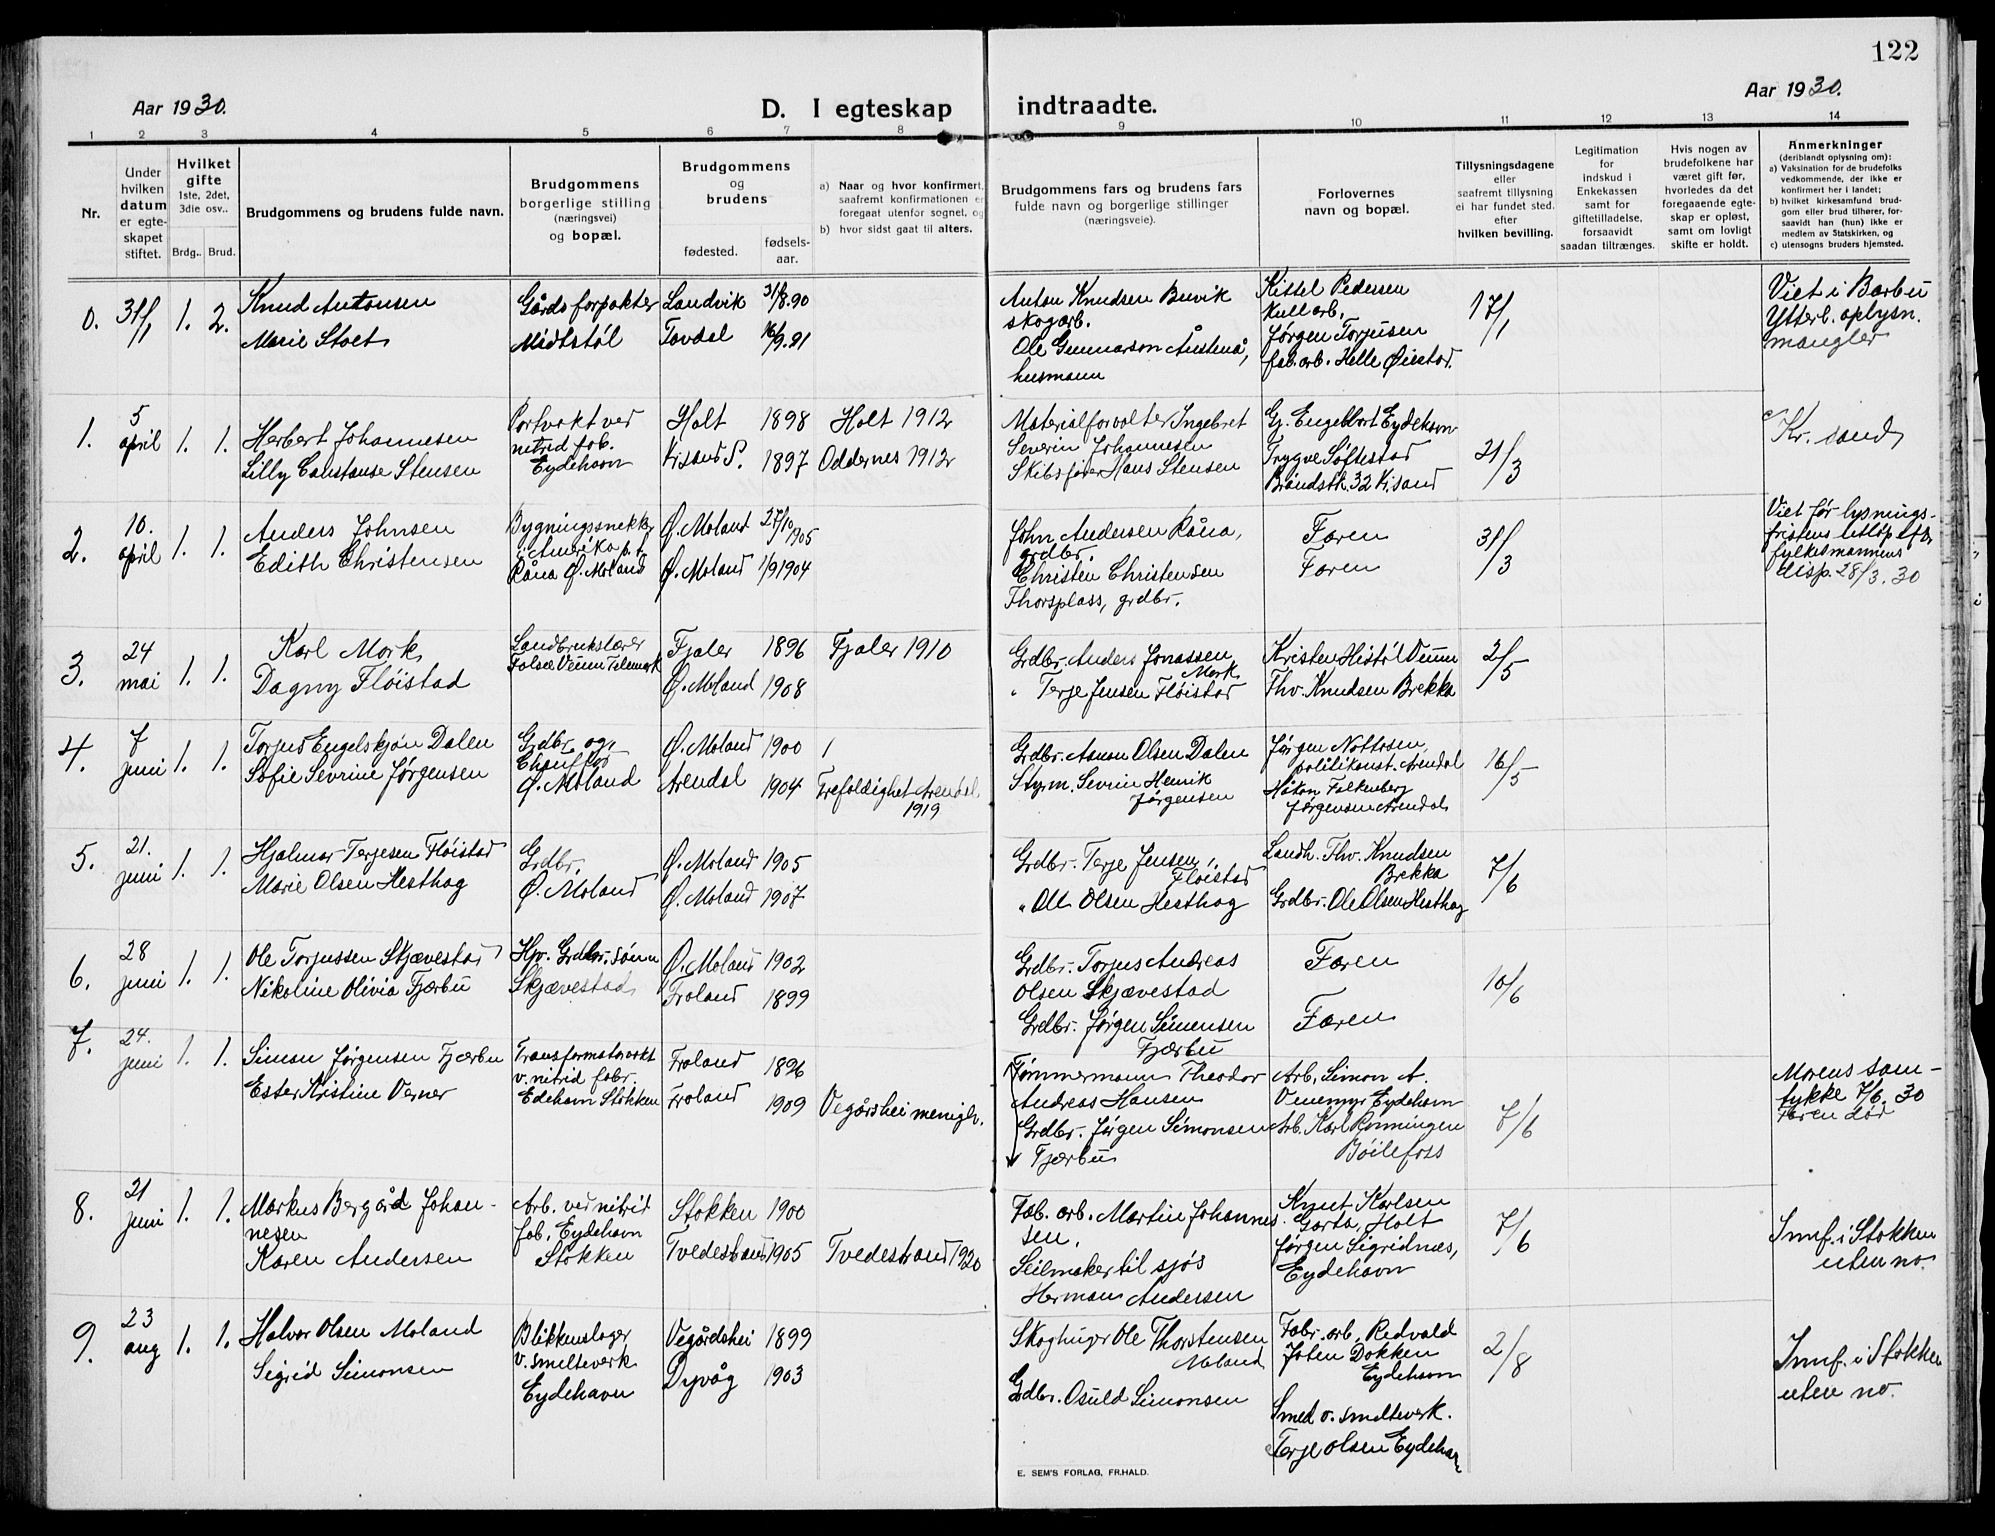 122
Aar 1930.
D. I egteskap indtraadte.
Aar 1930.
1 2 3 4 5 6 7 8 9 10 11 12 13 14
Nr.
Under hvilken datum er egteskapet stiftet.
Hvilket gifte 1ste, 2det, 3die osv..
Brdg.. Brud.
Brudgommens og brudens fulde navn.
Brudgommens borgerlige stilling (næringsvei) og bopæl.
Brudgommens og brudens
fødested. fødselsaar.
a) Naar og hvor konfirmert, saafremt konfirmationen er foregaat utenfor sognet, og
b) hvor sidst gaat til alters.
Brudgommens fars og brudens fars fulde navn og borgerlige stillinger (næringsveie).
Forlovernes navn og bopæl.
Tillysningsdagene eller saafremt tillysning ei har fundet sted. efter hvilken bevilling.
Legitimation for indskud i Enkekassen samt for giftetilladelse, forsaavidt saadan tiltrænges.
Hvis nogen av brudefolkene har været gift før, hvorledes da det foregaaende egteskap er opløst, samt om lovligt skifte er holdt.
Anmerkninger (deriblandt oplysning om):
a) Vaksination for de brudefolks vedkommende, der ikke er konfirmert her i landet;
b) hvilket kirkesamfund brudgom eller brud tilhører, forsaavidt han (hun) ikke er medlem av Statskirken, og
c) utensogns bruders hjemsted.
0. 31/1 1. 2. Knud Antonsen Gårdsforpakter Landvik 31/8.90 Anton Knudsen Buvik Kittel Pedersen 17/1 Viet i Barbu
Marie Stoet Midtstøl Tovdal 16/9.91 skogarb. Kullarb. Ytterl. oplysn.
Ole Gunnarson Austenå, Jørgen Torjusen mangler
husmann fab. arb. Helle Øiestad.
1. 5 april 1. 1. Herbert Johannesen Portvakt ved Holt 1898 Holt 1912 Materialforvalter Ingebret G. Engelbort Eydehavn 21/3 Kr. sand
Lilly Constanse Stensen nitrid fab. Krsand S. 1897 Oddernes 1912 Severin Johannesen Trygve Søftestad
Eydehavn Skibsfører Hans Stensen Brandstk. 32 Krsand
2. 10. april 1. 1. Anders Johnsen Bygningssnekker Ø. Moland 27/10 1905 John Andersen Råna, Faren 31/3 Viet før lysnings-
Edith Christensen i Amerika p.t. Ø. Moland 1/9 1904 grdbr. Faren fristens utløp efter
Råna Ø. Moland Christen Christensen fylkesmannens
Thorsplass, grdbr. disp. 28/3.30
3. 24 mai 1. 1. Karl Mork Landbrukslærer Fjaler 1896 Fjaler 1910 Grdbr. Anders Jonassen Mork Kristen Histøl Veum 2/5
Dagny Fløistad Folsæ Veum Telemark Ø. Moland 1908 " Terje Jensen Fløistad Thv. Knudsen Brekka
4. 7 juni 1. 1. Torjus Engelskjøn Dalen Grdbr. og Ø. Moland 1900 Grdbr. Asmon Olsen Dalen Jørgen Nottosen 16/5
Sofie Sevrine Jørgensen Chauffør Arendal 1904 Trefoldighet Arendal 1919 Styrm. Sevrin Henrik politikonst. Arendal
Ø. Moland Jørgensen Håkon Falkenberg
Jørgensen Arendal
5. 21. juni 1. 1. Hjalmar Terjesen Fløistad Grdbr. Ø. Moland 1905 Grdbr. Terje Jensen Fløistad Landh. Thv. Knudsen Brekka 7/6
Marie Olsen Hesthag Ø. Moland Ø. Moland 1907 " Ole Olsen Hesthag Grdbr. Ole Olsen Hesthag
6. 28 juni 1. 1. Ole Torjussen Skjævestad Hjv. Grdbr. sønn Ø. Moland 1902 Grdbr. Torjus Andreas Faren 10/6
Nikoline Olivia Fjærbu Skjævestad Froland 1899 Olsen Skjævestad
Grdbr. Jørgen Simensen Faren
Fjærbu
7. 24. juni 1. 1. Simon Jørgensen Fjærbu Transformatorvakt Froland 1896 Tømmermann Theodor Arb. Simon A. 7/6 Morens sam-
Ester Kristine Verner v. nitrid fabr. Froland 1909 Vegårshei menigh. Andreas Hansen Venemyr Eydehavn tykke 7/6.30
Edehavn Stokken Grdbr. Jørgen Simonsen Arb. Karl Rønningen Faren død
Fjærbu Bøilefoss
8. 21 juni 1. 1. Markus Bergård Johan- Arb. ved nitrid Stokken 1900 Fab. arb. Martin Johannes- Knut Karlsen 7/6 Innf. i Stokken
nesen fab. Eydehavn Tvedestrand 1905 Tvedestrand 1920 sen, Garta, Holt uten no.
Karen Andersen Stokken Seilmaker til sjøs Jørgen Sigridnæs,
Herman Andersen Eydehavn
9. 23 aug 1. 1. Halvor Olsen Moland Blikkenslager Vegårdshei 1899 Skoghuger Ole Thorstensen Fabr. arb. Redvald 2/8 Innf. i Stokken
Sigrid Simonsen v. smelteverk Dypvåg 1903 Moland Joten Dokken uten no.
Eydehavn Grdbr. Osuld Simonsen Eydehavn
Smed v. smelteverk.
Terje Olsen Eydehavn
E. SEM'S FORLAG, FR.HALD.